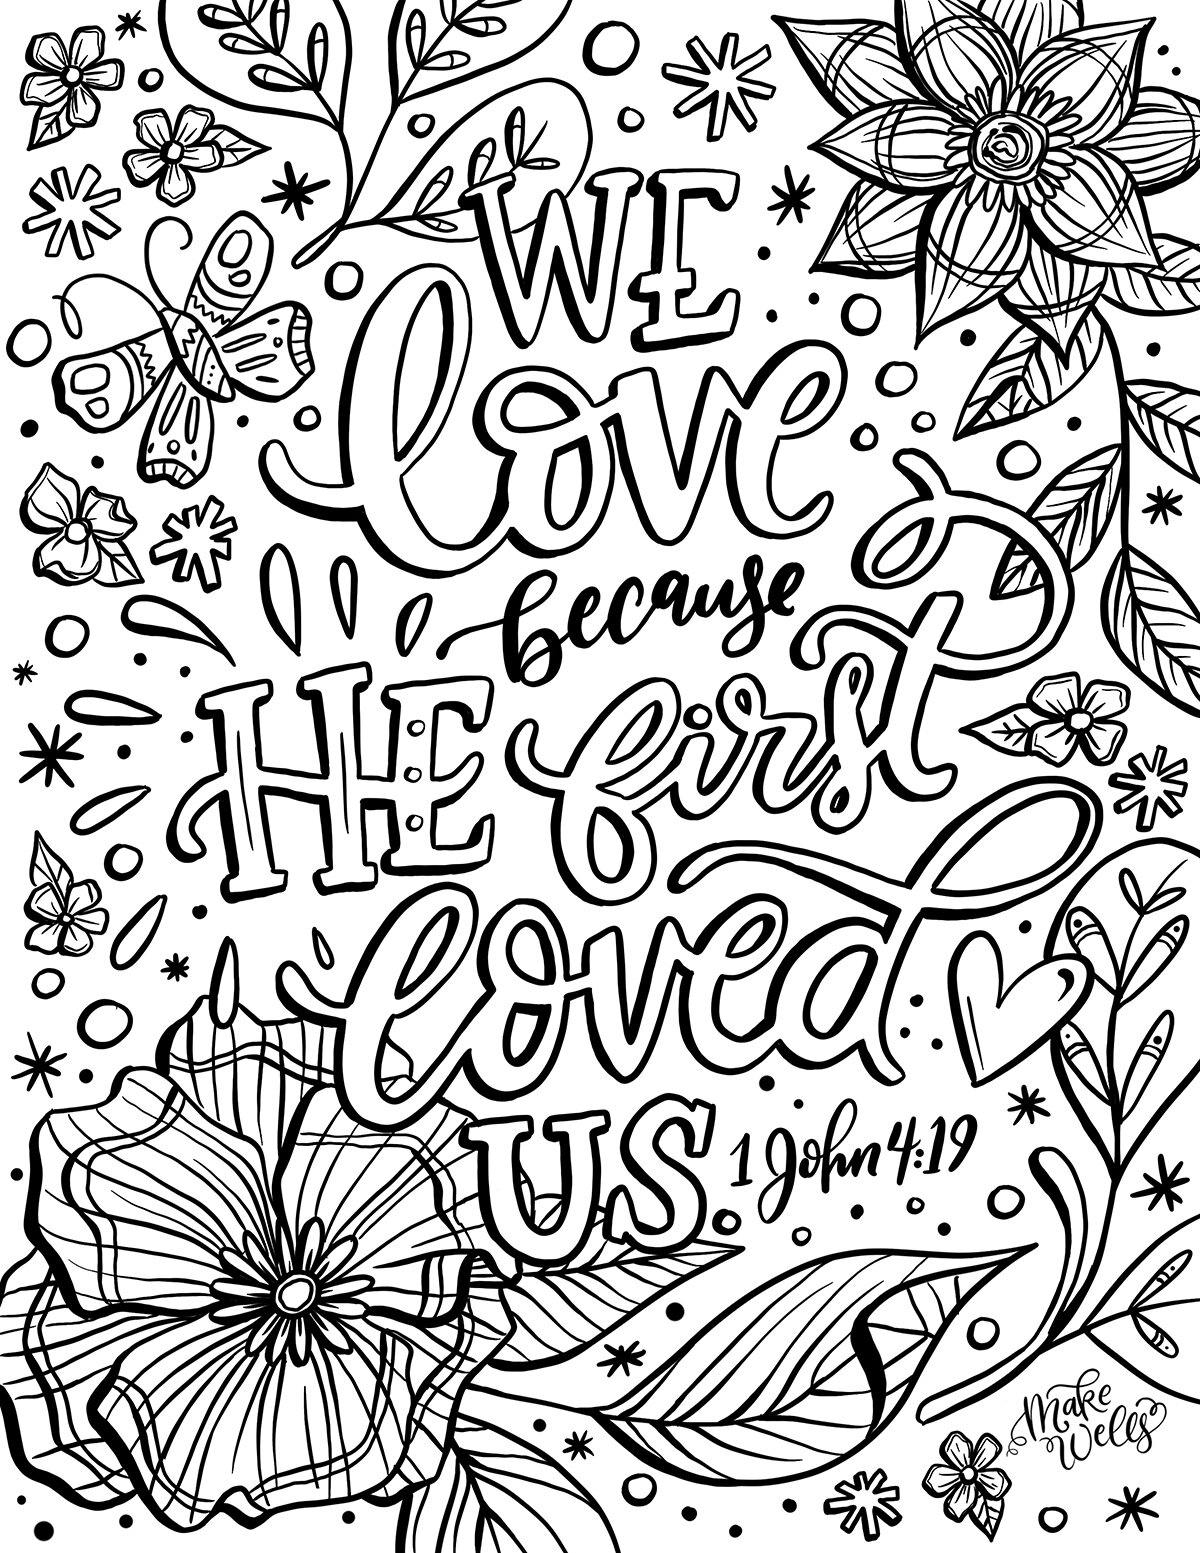 WE
love
because
HE first
loved
US. 1 John 4:19
Make
Wells